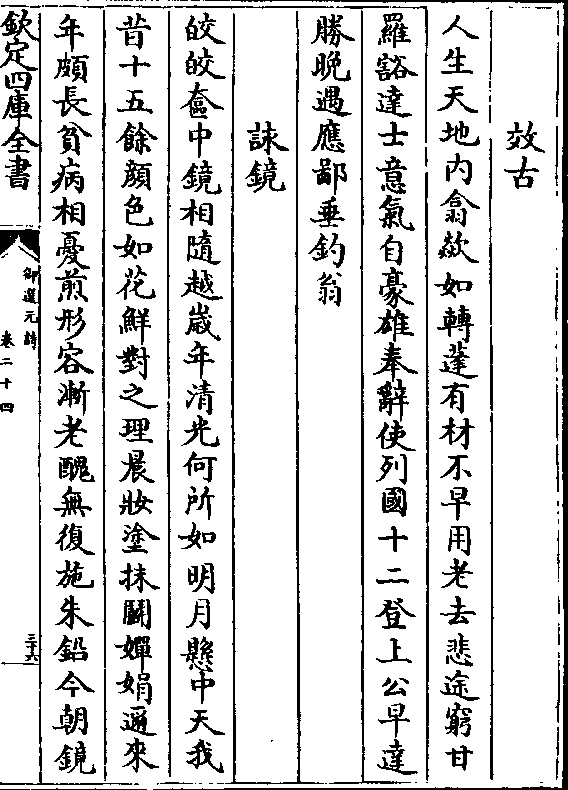 效古
人生天地内翕歘如轉蓬有材不早用老去悲途窮甘
羅谽達士意氣自豪雄奉辭使列國十二登上公早達
勝晚遇應鄙垂釣翁
誄鏡
皎皎奩中鏡相隨越歲年清光何所如明月懸中天我
昔十五餘顔色如花鮮對之理晨妝塗抹鬭嬋娟邇來
年頗長貧病相憂煎形容漸老醜無復施朱鉛今朝鏡
欽定四庫全書
御選元詩
卷二十四
三十六